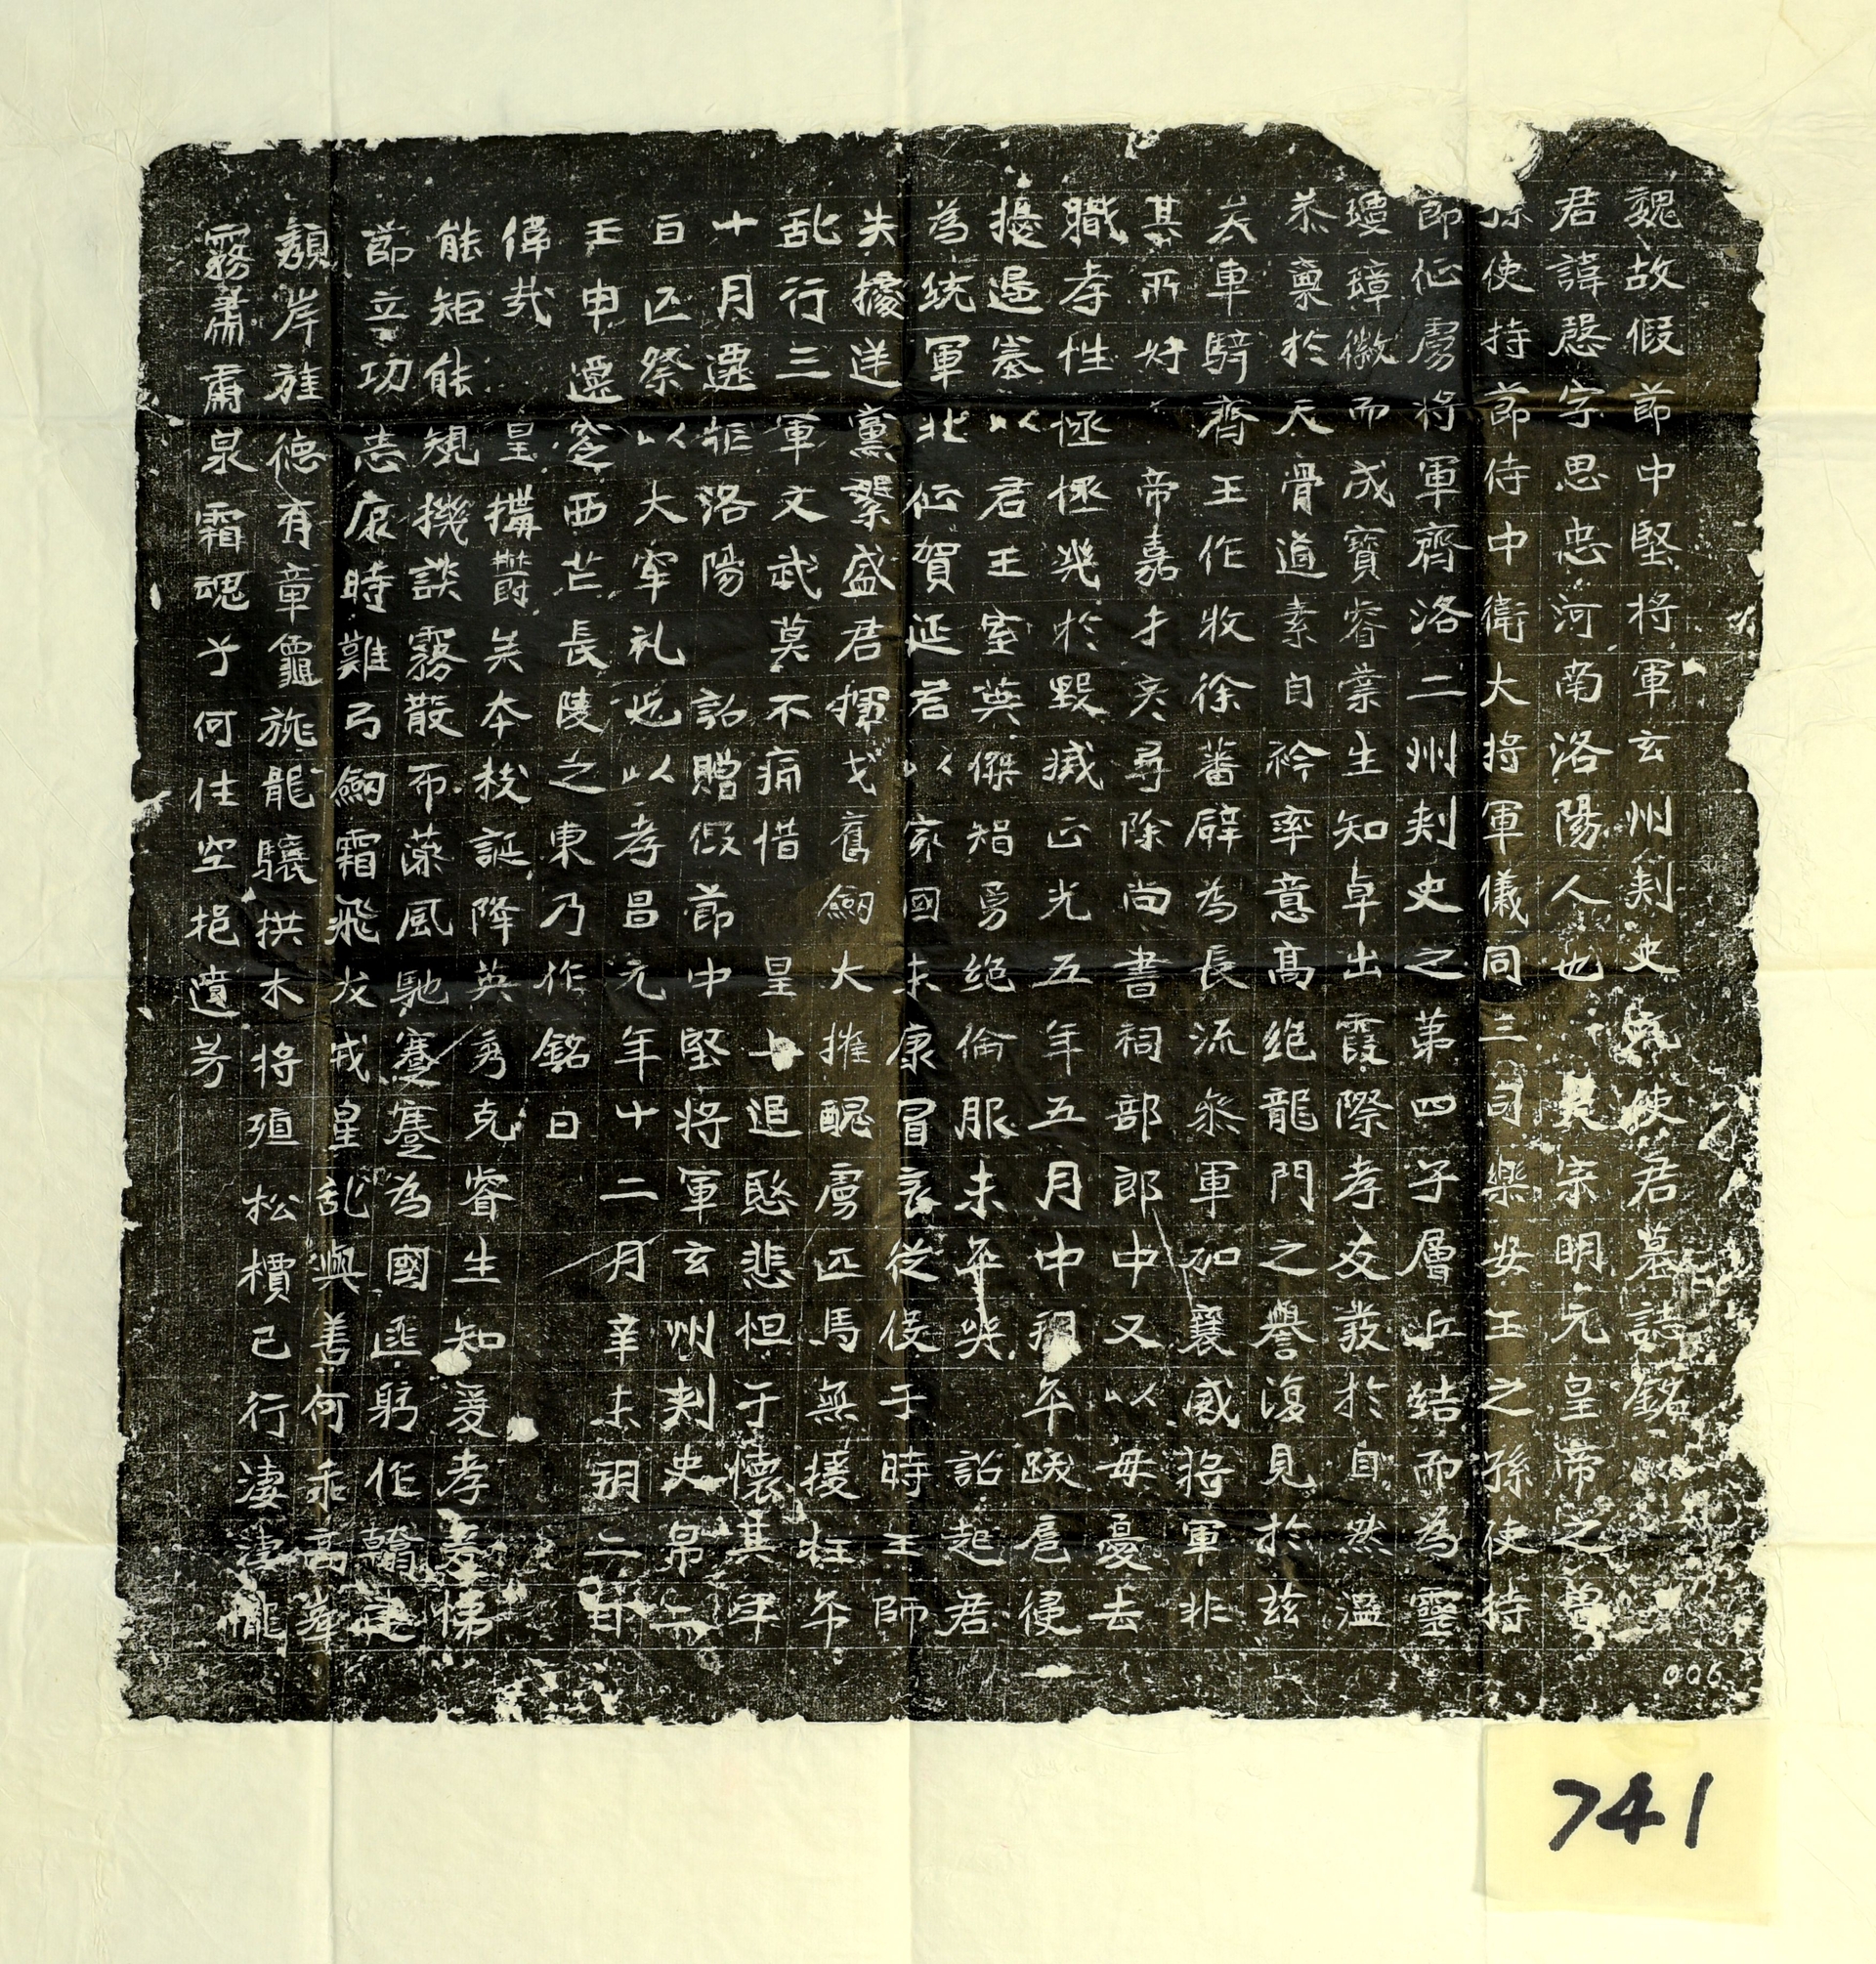 魏故假節中堅将軍玄州刾史元使君墓誌銘
君諱慇字思忠河南洛陽人也太宗明元皇帝之曾
孫使持節侍中衛大将軍儀同三司樂安王之孫使持
節征虜将軍齊洛二州刾史之第四子層丘結而為靈
瓊璋徽而成寶睿業生知卓出霞際孝友發於自然温
恭禀於天骨道素自衿率意高絶龍門之譽復見於茲
矣車騎齊王作牧徐蕃辟為長流叅軍加襄威将軍非
其所好帝嘉才彦尋除尚書祠部郎中又以母憂去
職孝性極極幾於毀滅正光五年五月中朔卒跋扈侵
擾邊塞以君王室英傑智勇絶倫服未卒哭詔起君
為統軍北征賀延君以家國未康冒哀從役于時王師
失據逆黨槊盛君揮戈奮劒大摧醜虜匹馬無援枉卒
乱行三軍文武莫不痛惜皇上追愍悲怛于懷其年
十月遷葬洛陽詔贈假節中堅将軍玄州刾史帛一
百匹祭以大牢礼也以孝昌元年十二月辛未玥二日
壬申遷窆西芒長陵之東乃作銘曰
偉哉皇搆欝矣本枝誕降英秀克睿生知爰孝爰悌
能矩能規機談霧散布藻風馳蹇蹇為國匪躬作贊
節立功志康時難弓劒霜飛戈戎皇乱與善何乖高峯
頹岸旌德有章龜旐龍驤拱木将殖松檟已行淒淒隴
霧肅肅泉霜魂兮何住空挹遺芳
006
741